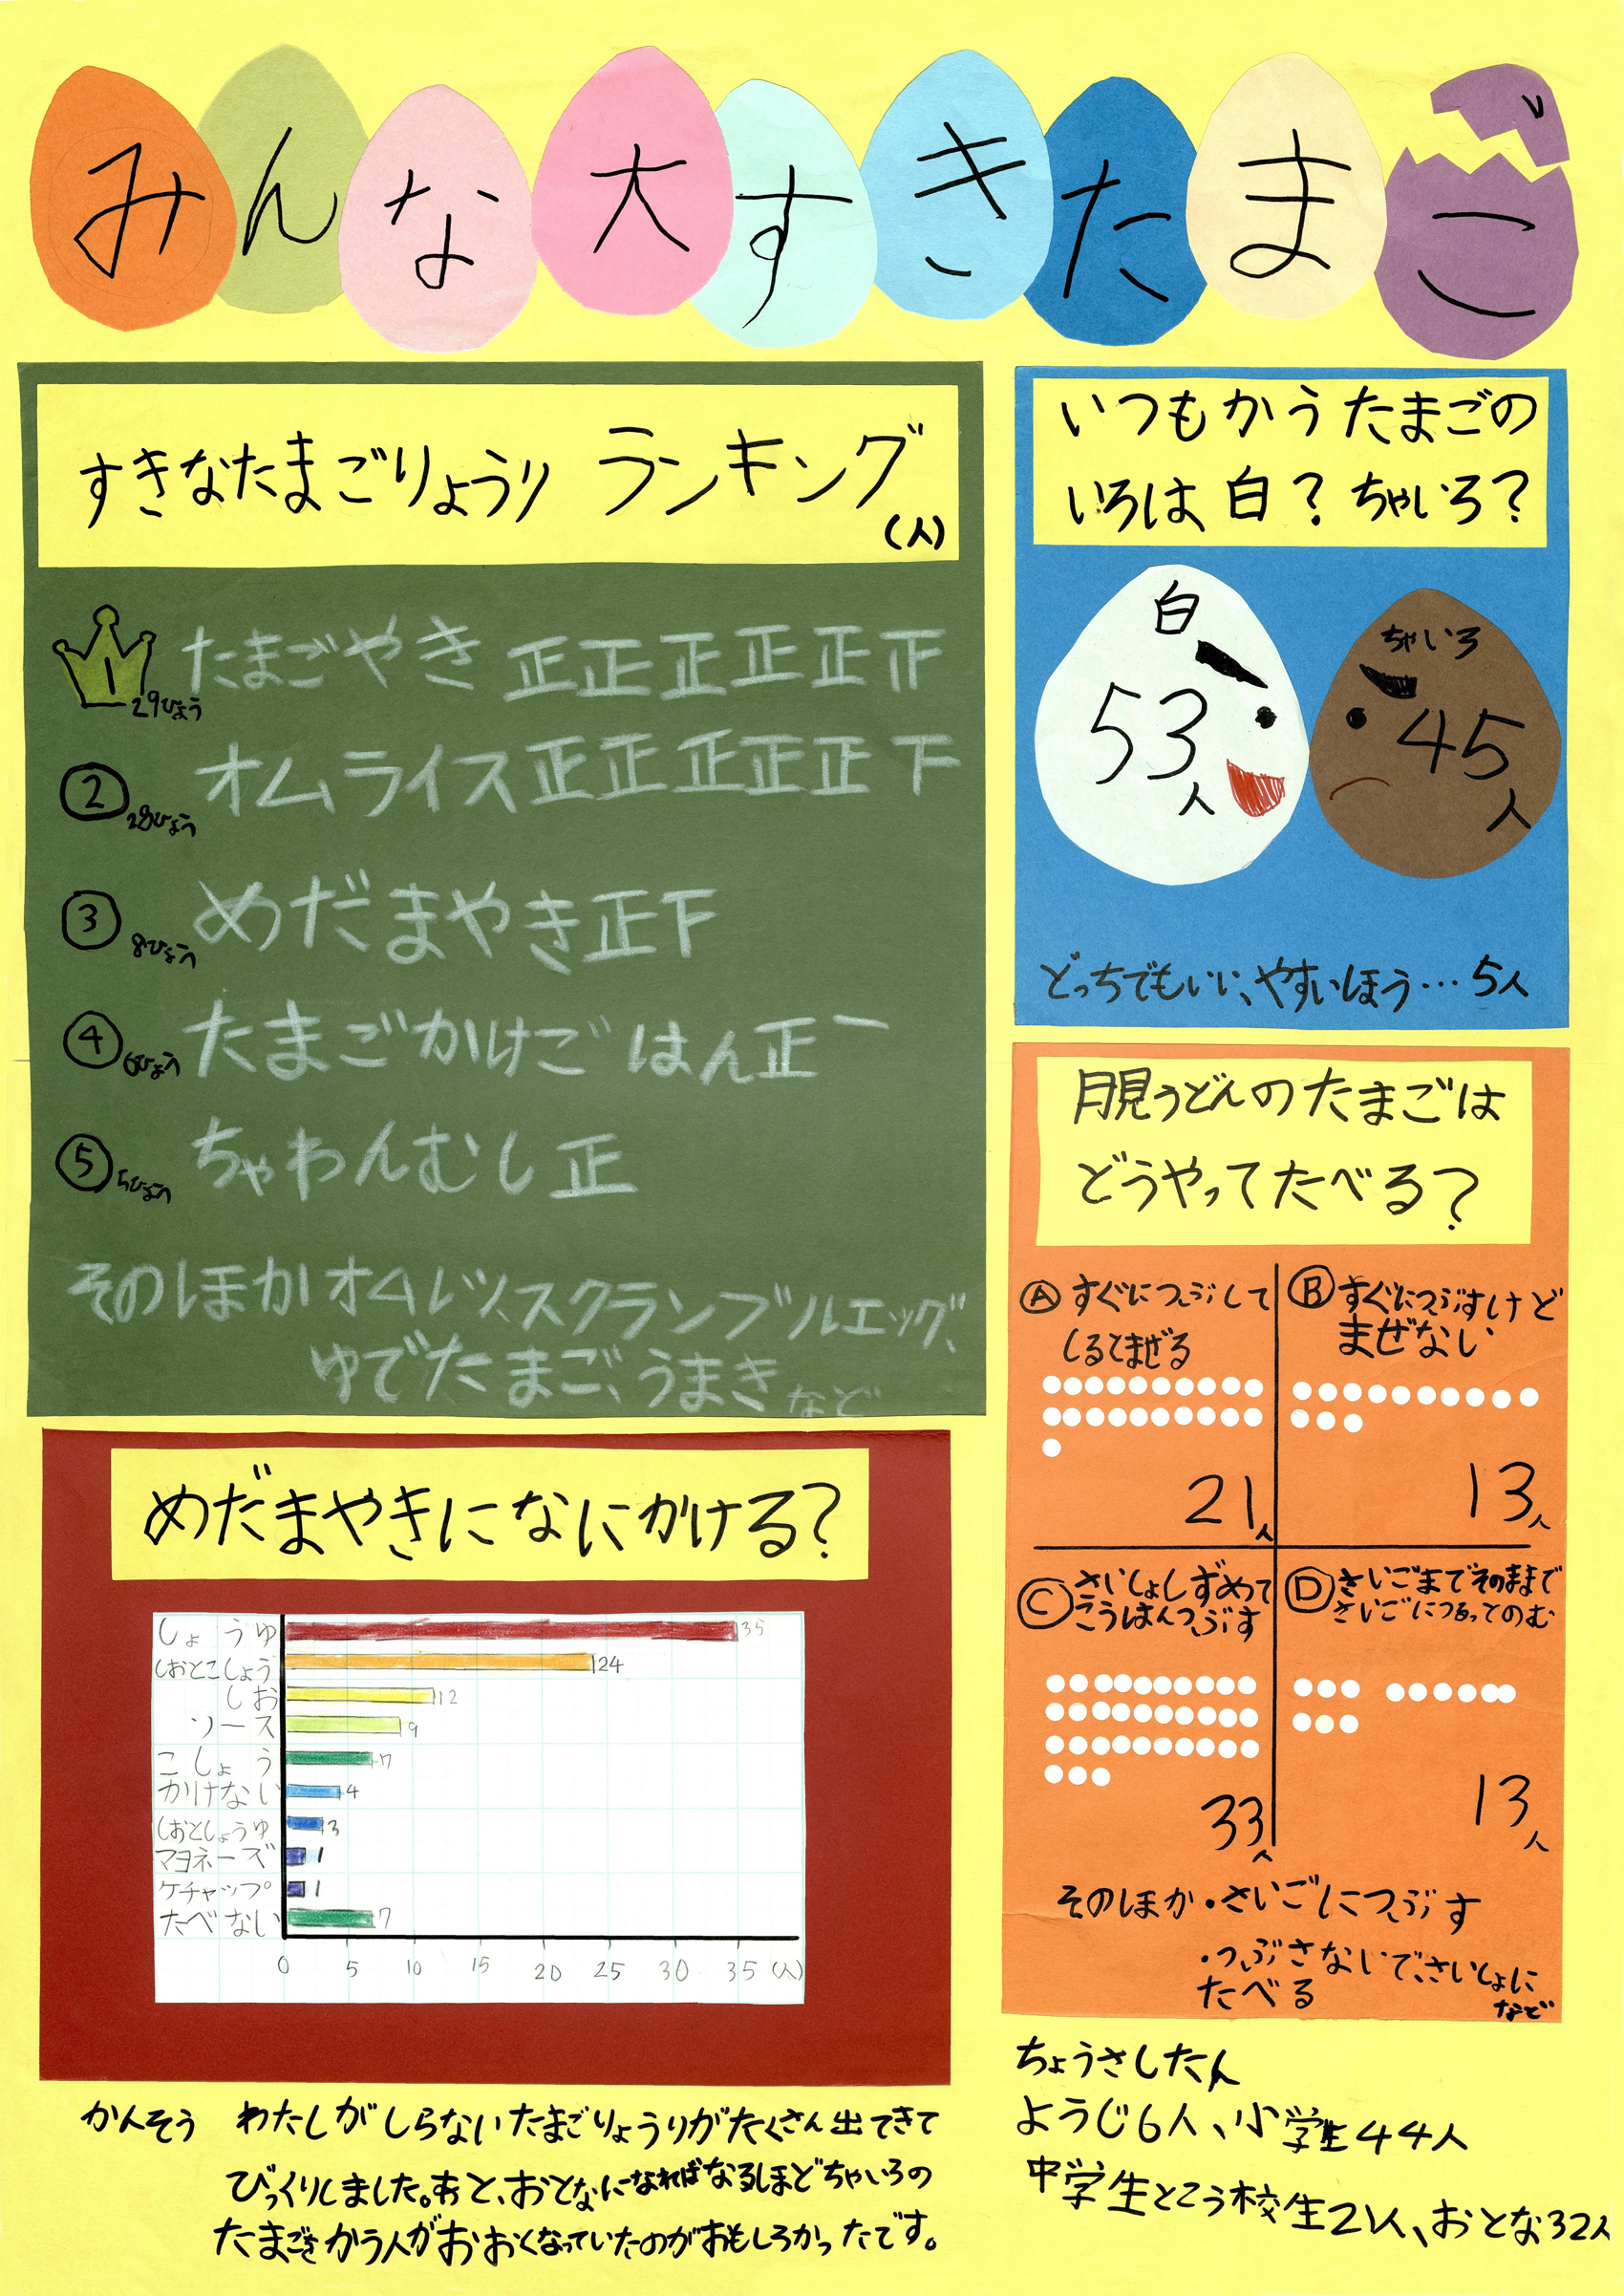 みんな大すきたまご
すきなたまごりょうり ランキング
(人)
1 29ひょう たまごやき 正正正正正正
② 28ひょう オムライス 正正正正正下
③ 8ひょう めだまやき 正下
④ 6ひょう たまごかけごはん 正一
⑤ 5ひょう ちゃわんむし 正
そのほか オムレツ、スクランブルエッグ、
ゆでたまご、うまき など
めだまやきになにかける?
しょうゆ 35
しおとこしょう 24
しお 12
ソース 9
こしょう 7
かけない 4
しおとしょうゆ 3
マヨネーズ 1
ケチャップ 1
たべない 7
0 5 10 15 20 25 30 35 (人)
かんそう わたしがしらないたまごりょうりがたくさん出てきて
びっくりしました。あと、おとなになればなるほどちゃいろの
たまごをかう人がおおくなっていたのがおもしろかったです。
いつもかうたまごの
いろは白?ちゃいろ?
白
53人
ちゃいろ
45人
どっちでもいい、やすいほう…5人
月見うどんのたまごは
どうやってたべる?
Ⓐ すぐにつぶして
しるとまぜる
21人
Ⓑ すぐにつぶすけど
まぜない
13人
Ⓒ さいしょしずめて
こうはんつぶす
33人
Ⓓ さいごまでそのままで
さいごにつるってのむ
13人
そのほか・さいごにつぶす
・つぶさないで、さいしょに
たべる
など
ちょうさした人
ようじ6人、小学生44人
中学生とこう校生21人、おとな32人